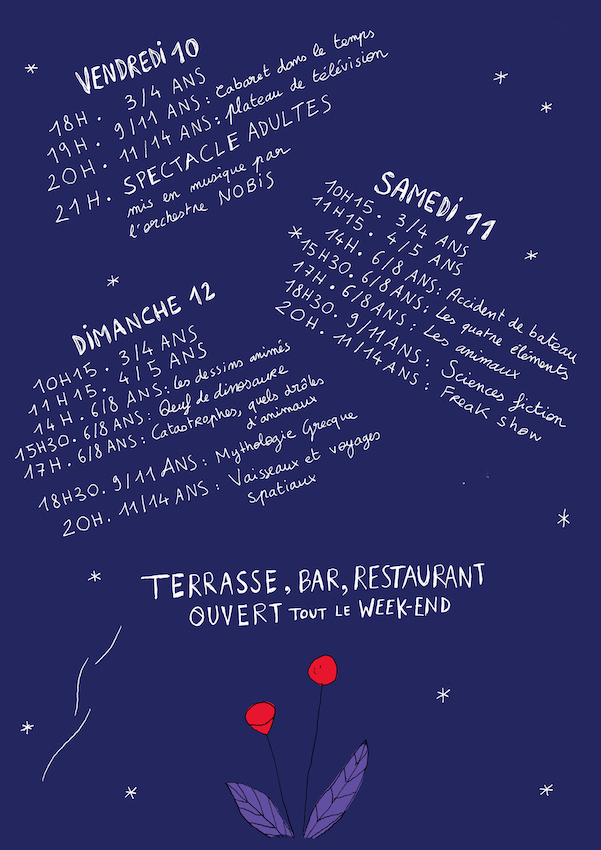 VENDREDI 10
18H. 3/4 ANS
19H. 9/11 ANS : Cabaret dans le temps
20H. 11/14 ANS : plateau de télévision
21H. SPECTACLE ADULTES
mis en musique par
l'orchestre NOBIS
SAMEDI 11
10H15. 3/4 ANS
11H15. 4/5 ANS
14H. 6/8 ANS : Accident de bateau
*15H30. 6/8 ANS : Les quatre éléments
17H. 6/8 ANS : Les animaux
18H30. 9/11 ANS : Sciences fiction
20H. 11/14 ANS : Freak show
DIMANCHE 12
10H15. 3/4 ANS
11H15. 4/5 ANS
14H. 6/8 ANS : les dessins animés
15H30. 6/8 ANS : Oeuf de dinosaure
17H. 6/8 ANS : Catastrophes, quels drôles
d'animaux
18H30. 9/11 ANS : Mythologie Grecque
20H. 11/14 ANS : Vaisseaux et voyages
spatiaux
TERRASSE, BAR, RESTAURANT
OUVERT TOUT LE WEEK-END